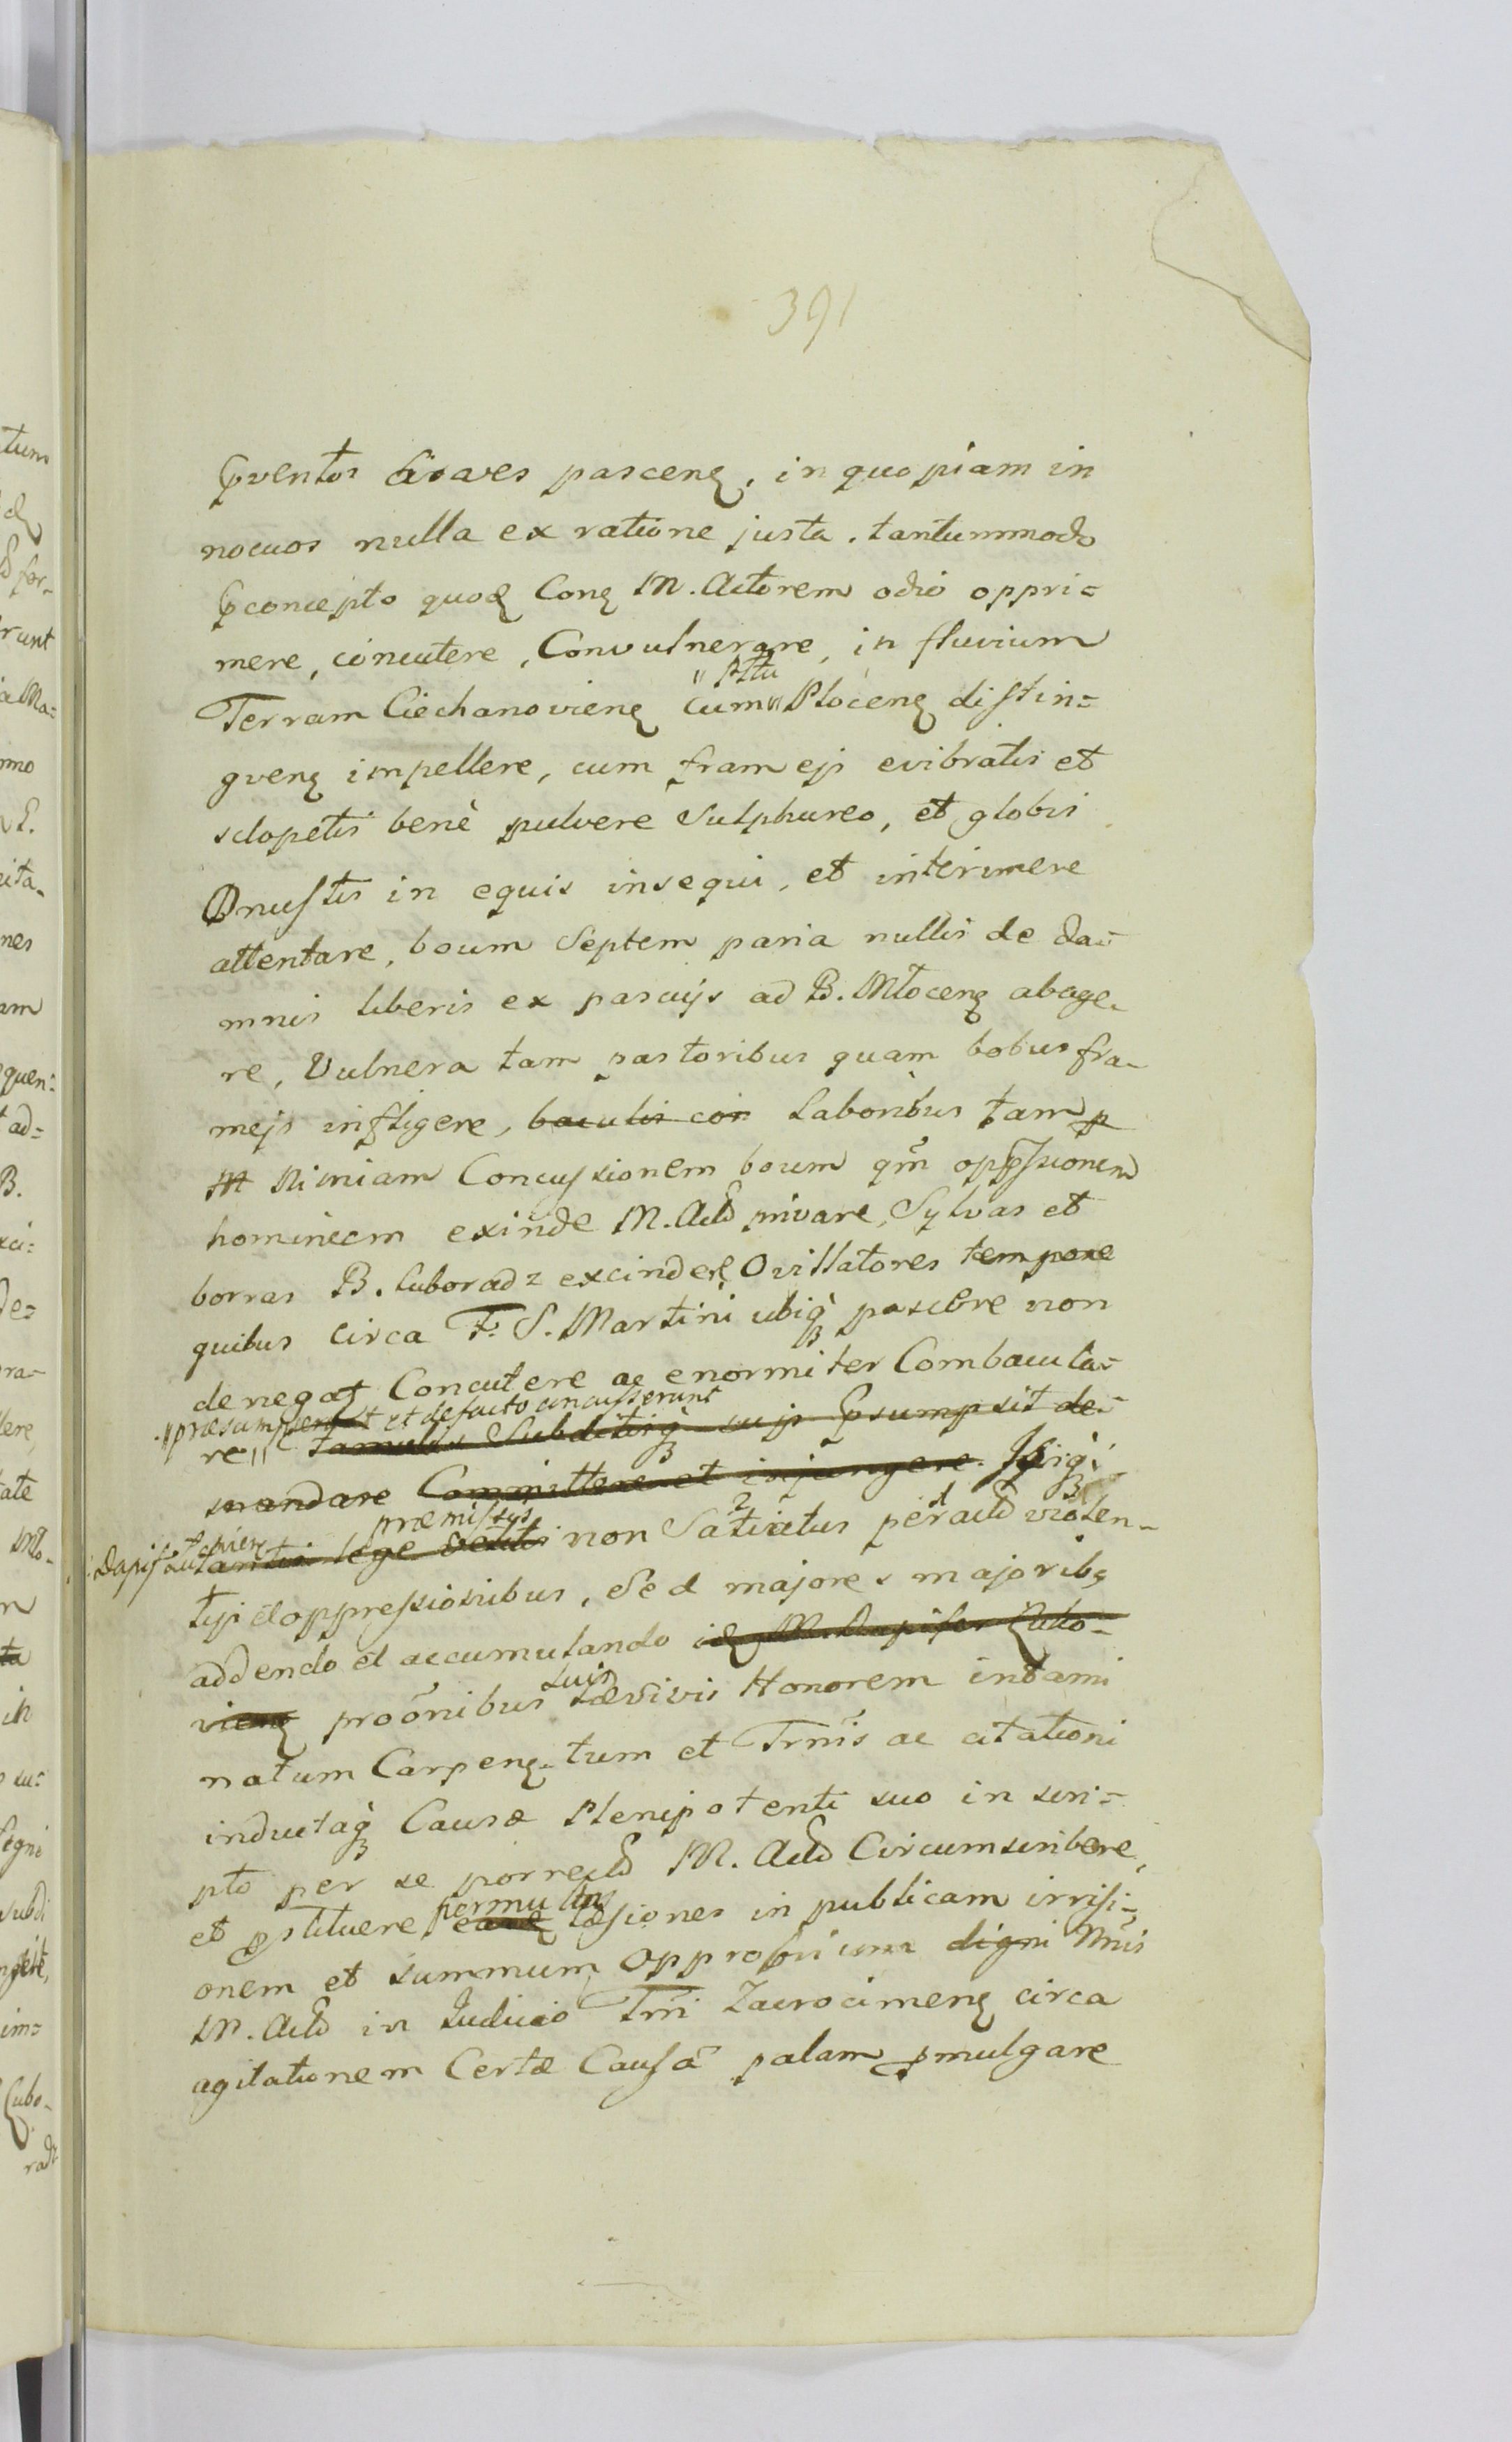 391
ꝓventos boves pascenꝫ, in quopiam in
nocuos nulla ex ratione justa, tantummodo
ꝓconcepto quoꝫ Conꝫ M. Actorem odio oppri=
mere, concutere, Convulnerare, in fluvium
" Plttu
Terram Ciechanovienꝫ cum" Plocenꝫ distin=
gvenꝫ impellere, cum framejs evibratis et
sclopetis benè pulvere Sulphureo, et globis
Onustis in equis insequi, et interimere
attentare, boum Septem paria nullis de da=
mnis liberis ex pascuijs ad B. Młocenꝫ abage-
re, Vulnera tam pastoribus quam bobus fra-
mejs infligere, baculis con laboribus tam p
m Nimiam Concussionem boum qm̃ opp̃ssionem
hominum exinde M. Actō privare, Sylvas et
borras B. Luboradz excindere, Ovillatores tempore
quibus circa F. S. Martini ubiqꝫ pascere non
denegat Concutere ac enormiter Combacula=
"præsumpserunt et de facto concusserunt
re" famulis Subditisqꝫ sujs ꝓsumpsit de=
mandare Committere et injungere. Ijsqꝫ
præmissys
non Satiatus per actō violen-
tijs et oppressionibus, Sed majores majoribꝫ
addendo et accumulando idꝫ M. Dapifer Zuto=
suis
vienꝫ proõnibus lævivis Honorem intami
natum Carpenꝫ tum et Trñis ac citationi
inductaqꝫ Causæ Plenipotenti suo in scri=
pto per se porrectō M. Actō Circumscribere,
permultas
et ꝓstituere easꝫ læsiones in publicam irrisi=
onem et summum opprobrium digni Nñis
M. Actō in Judicio Trñi Zacrocimenꝫ circa
agitationem Certæ Causã palam ꝓmulgare